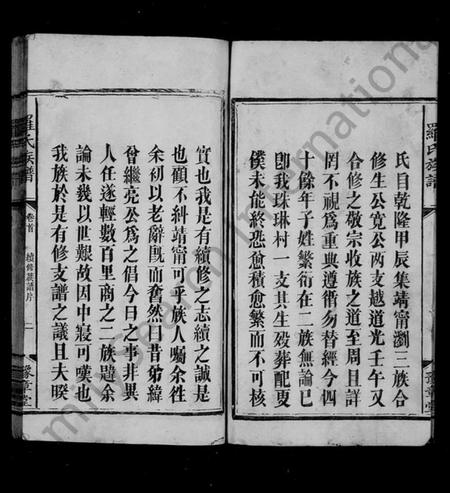 羅氏族譜
豫章堂
氏自乾隆甲辰集靖甯瀏三族合
修生公寬公兩支越道光壬午又
合修之敬宗收族之道至周且詳
罔不視爲重典遵循勿替經今四
十餘年子姓繁衍在二族無論已
卽我珠琳村一支其生歿葬配夏
僕未能終恐愈積愈繁而不可核
實也我是有續修之志續之誠是
也顧不糾靖甯可乎族人囑余徃
余初以老辭旣而奮然曰昔弟緯
曾繼亮公爲之倡今日之事非異
人任遂輕數百里商之二族題余
論未幾以世艱故因中寢可嘆也
我族於是有修支譜之議且夫睽
羅氏族譜
卷首
續修族譜序
二
豫章堂